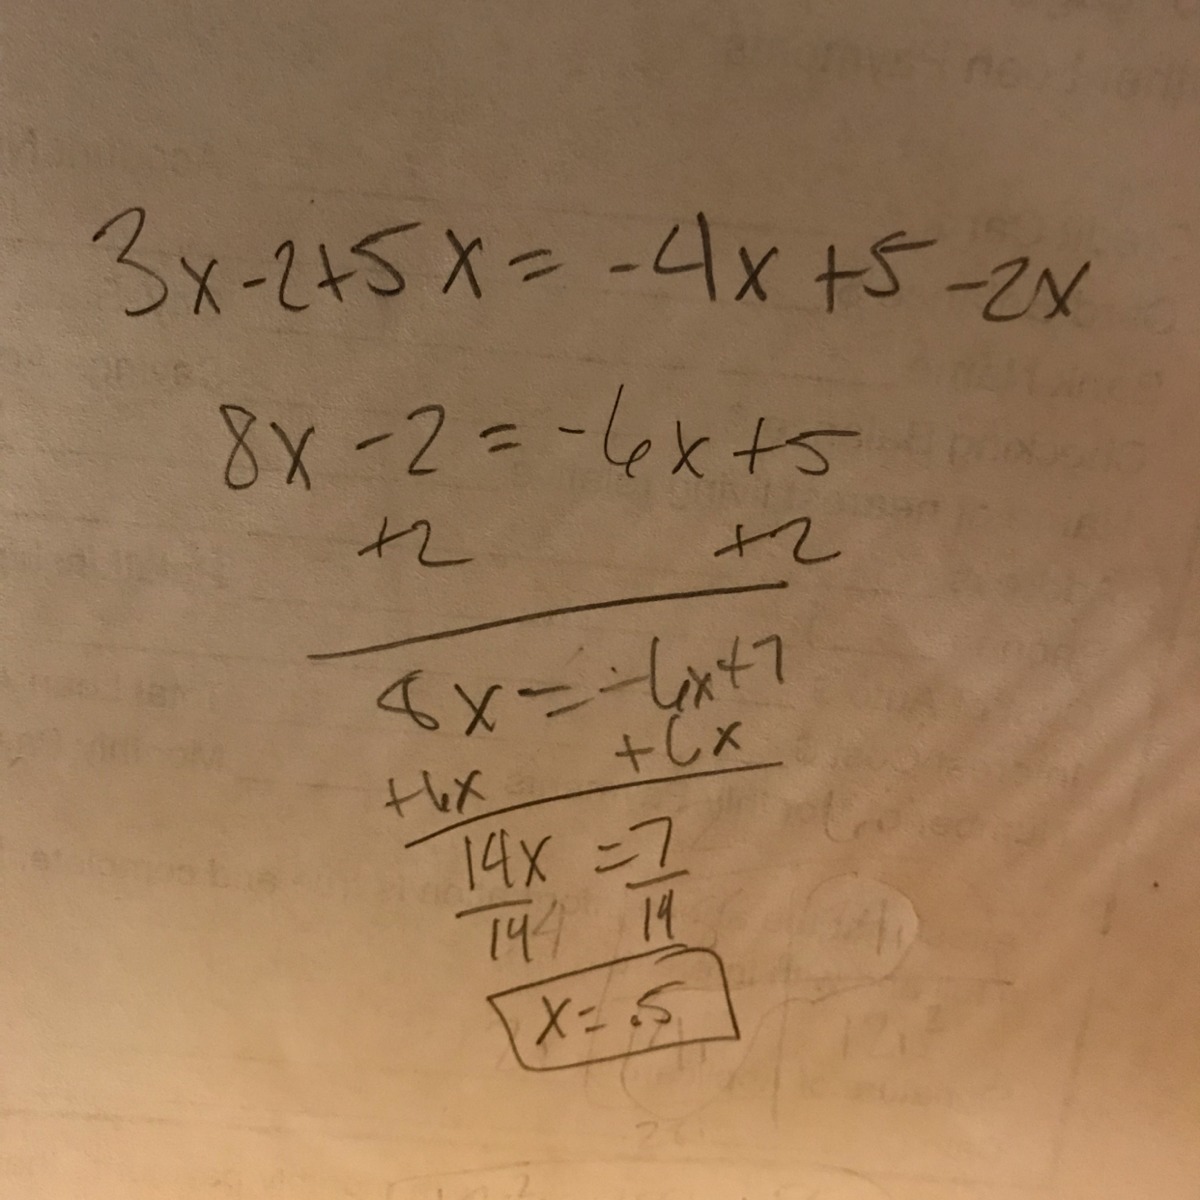 3x-2+5x=-4x+5-2x
8x-2=-6x+5
+2 +2
8x=-6x+7
+6x +6x
14x=7
14 14
x=.5